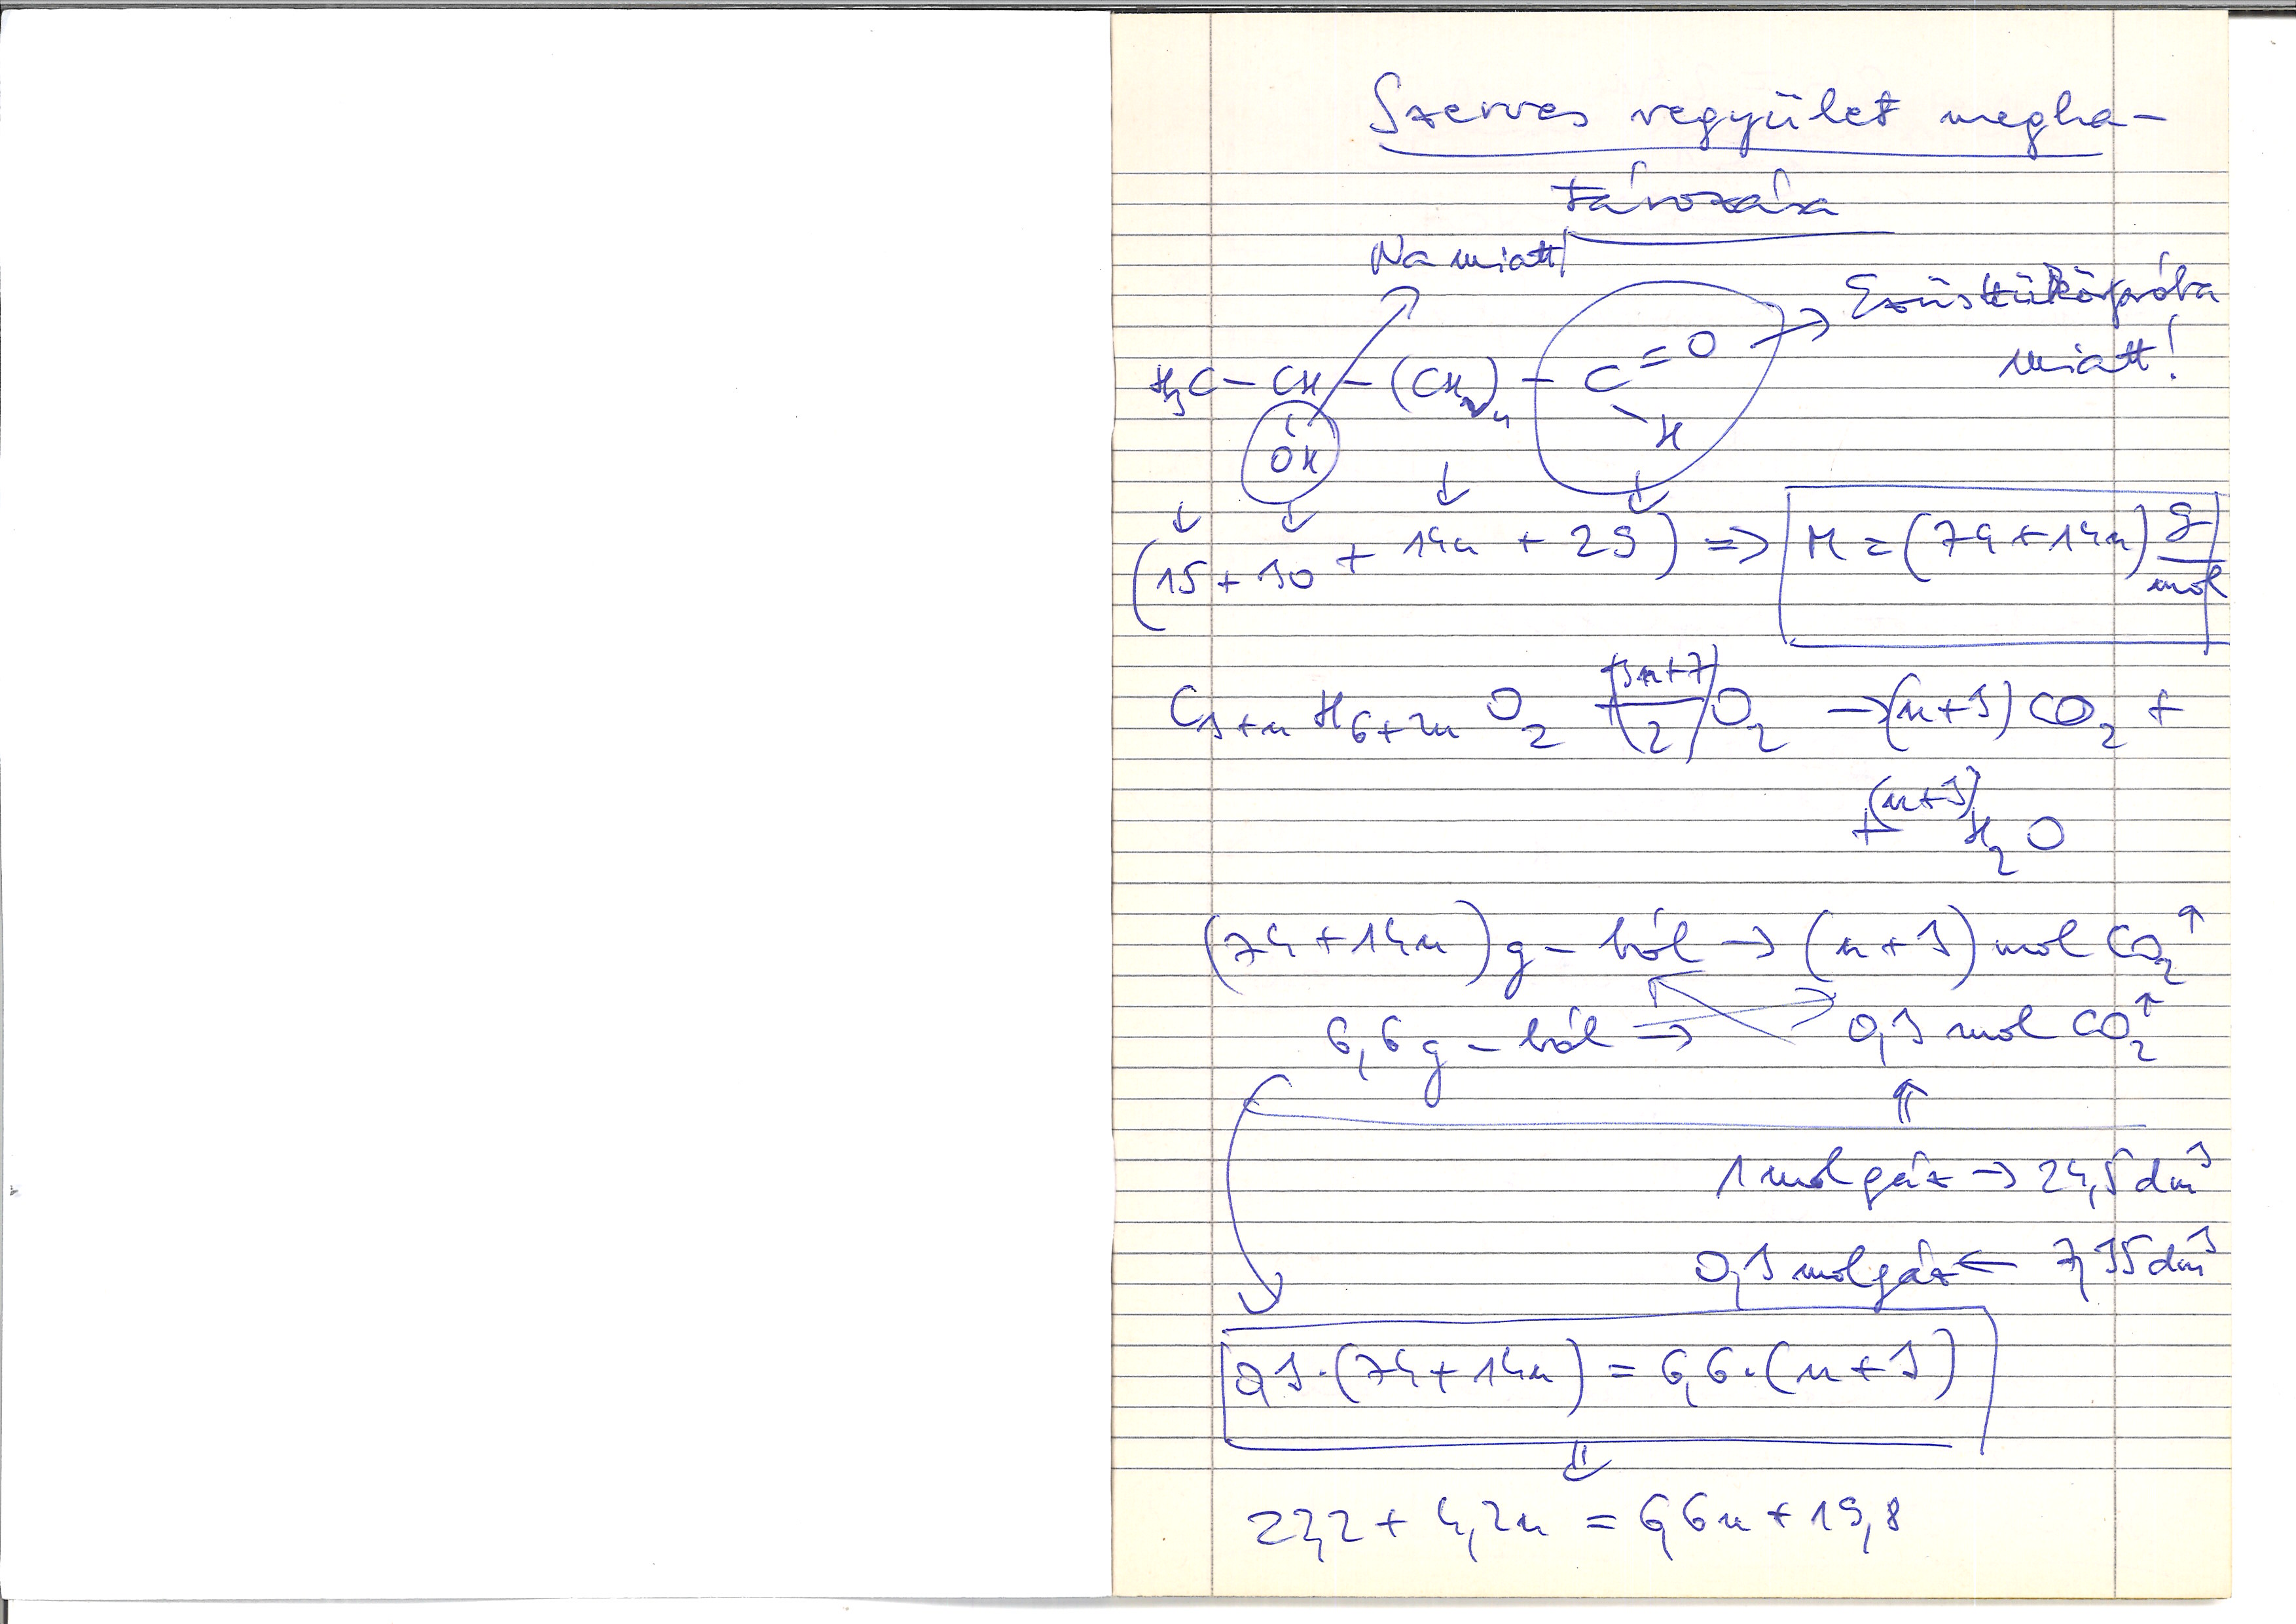 Szerves vegyület megha-
tározása
Na miatt!
Ezüsttükörpróba
miatt!
H₃C – CH – (CH₂)ₙ – C = O
OH
H
(15 + 30 + 14n + 29) ⇒ M = (74 + 14n) g/mol
C₃₊ₙ H₆₊₂ₙ O₂ + (3n+7)/2 O₂ → (n+3) CO₂ +
+ (n+3) H₂O
(74 + 14n) g – ból → (n + 3) mol CO₂↑
6,6 g – ból → 0,3 mol CO₂↑
⇑
1 mol gáz → 24,5 dm³
0,3 mol gáz ← 7,35 dm³
0,3·(74 + 14n) = 6,6·(n + 3)
⇓
22,2 + 4,2n = 6,6n + 19,8